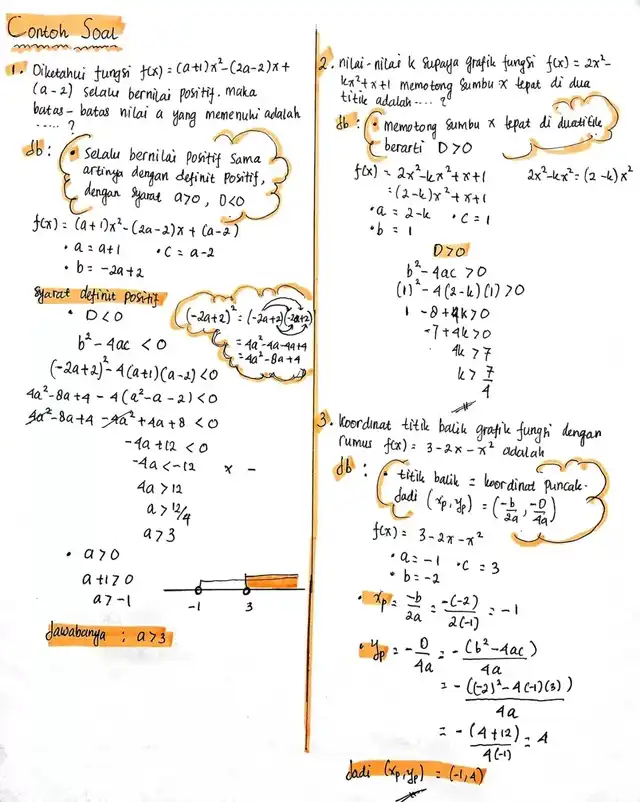 Contoh Soal
1. Diketahui fungsi f(x) = (a+1)x²-(2a-2)x+
(a-2) selalu bernilai positif. maka
batas-batas nilai a yang memenuhi adalah
.....?
db :
• Selalu bernilai positif sama
artinya dengan definit positif,
dengan syarat a>0, D<0
f(x) = (a+1)x²-(2a-2)x + (a-2)
• a = a+1 • c = a-2
• b = -2a+2
Syarat definit positif
• D<0
b²-4ac < 0
(-2a+2)² = (-2a+2)(-2a+2)
= 4a²-4a-4a+4
= 4a²-8a+4
(-2a+2)²-4(a+1)(a-2)<0
4a²-8a+4 -4(a²-a-2) <0
4a²-8a+4 -4a²+4a+8 <0
-4a+12 <0
-4a<-12 x -
4a>12
a>12/4
a>3
• a>0
a+1>0
a>-1
-1 3
Jawabanya : a>3
2. nilai-nilai k supaya grafik fungsi f(x) = 2x²-
kx²+x+1 memotong sumbu x tepat di dua
titik adalah....?
db :
• memotong sumbu x tepat di duatitik
berarti D>0
f(x) = 2x²-kx²+x+1 2x²-kx²=(2-k)x²
= (2-k)x²+x+1
• a = 2-k • c = 1
• b = 1
D>0
b²-4ac >0
(1)²-4(2-k)(1)>0
1 -8+4k>0
-7+4k>0
4k>7
k> 7/4
3. koordinat titik balik grafik fungsi dengan
rumus f(x) = 3-2x-x² adalah
db :
• titik balik = koordinat puncak.
Jadi (xp,yp) = (-b/2a, -D/4a)
f(x) = 3-2x-x²
• a = -1 • c = 3
• b = -2
• xp = -b/2a = -(-2)/2(-1) = -1
• yp = -D/4a = -(b²-4ac)/4a
= -((-2)²-4(-1)(3))/4a
= -(4+12)/4(-1) = 4
Jadi (xp,yp) = (-1,4)